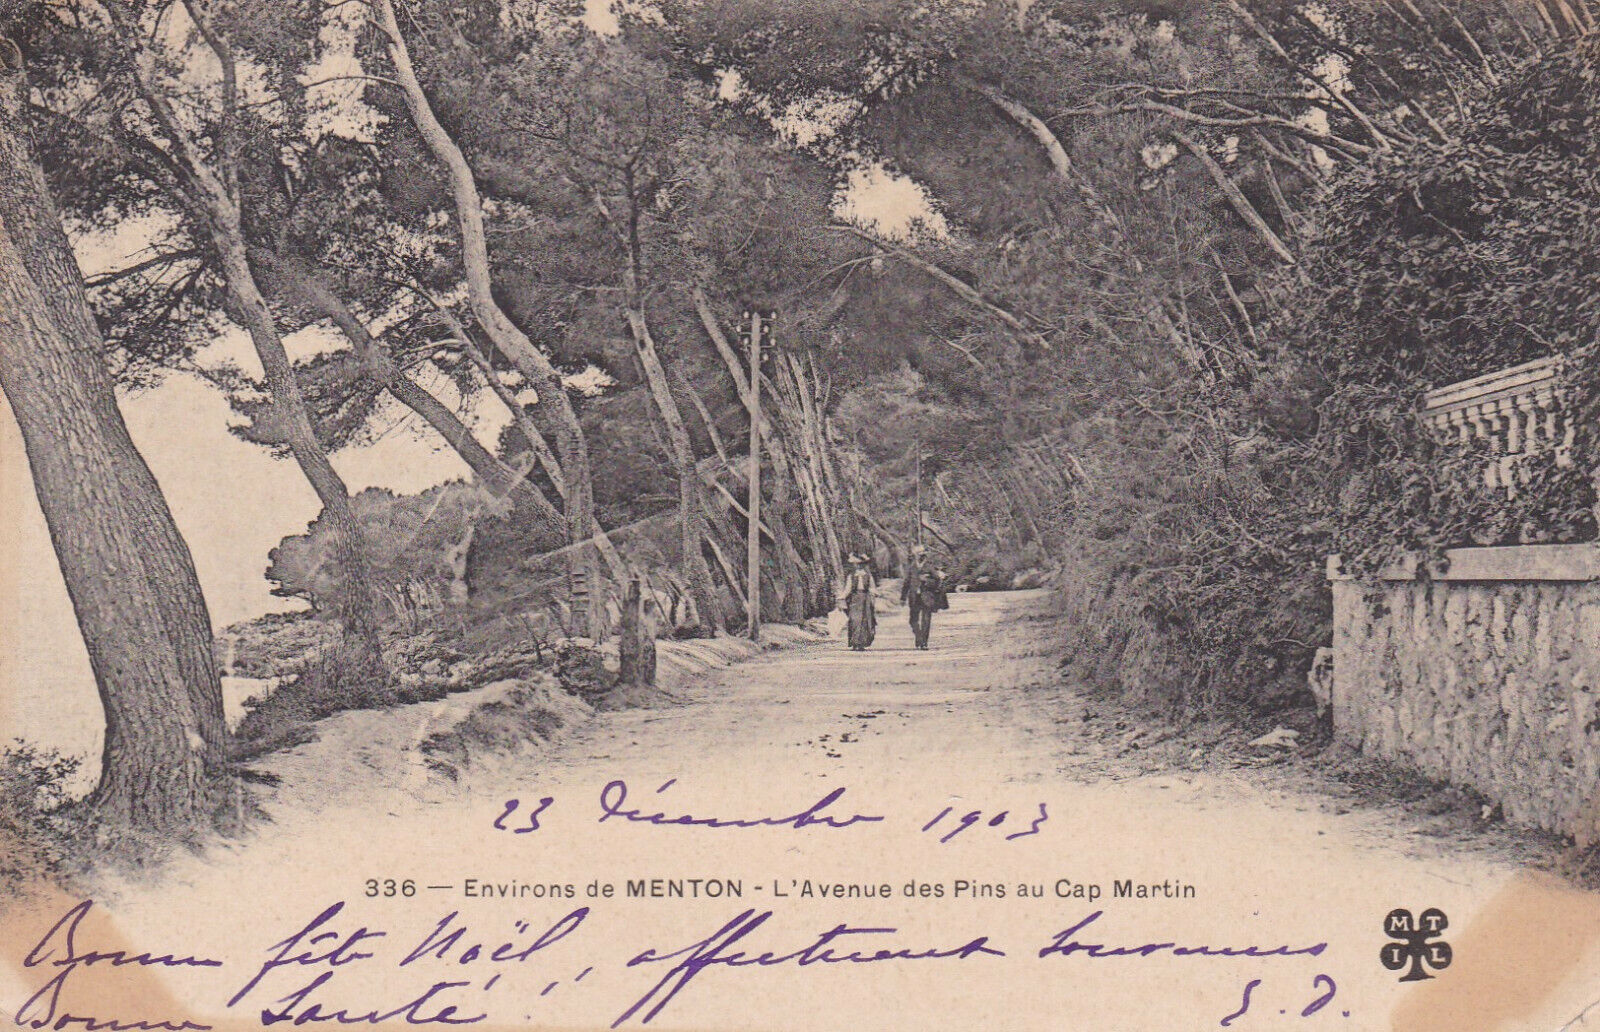 23 décembre 1903
336 — Environs de MENTON - L'Avenue des Pins au Cap Martin
Bonne fête Noël, affectueux souvenirs
Bonne Santé !
S. D.
M T
I L